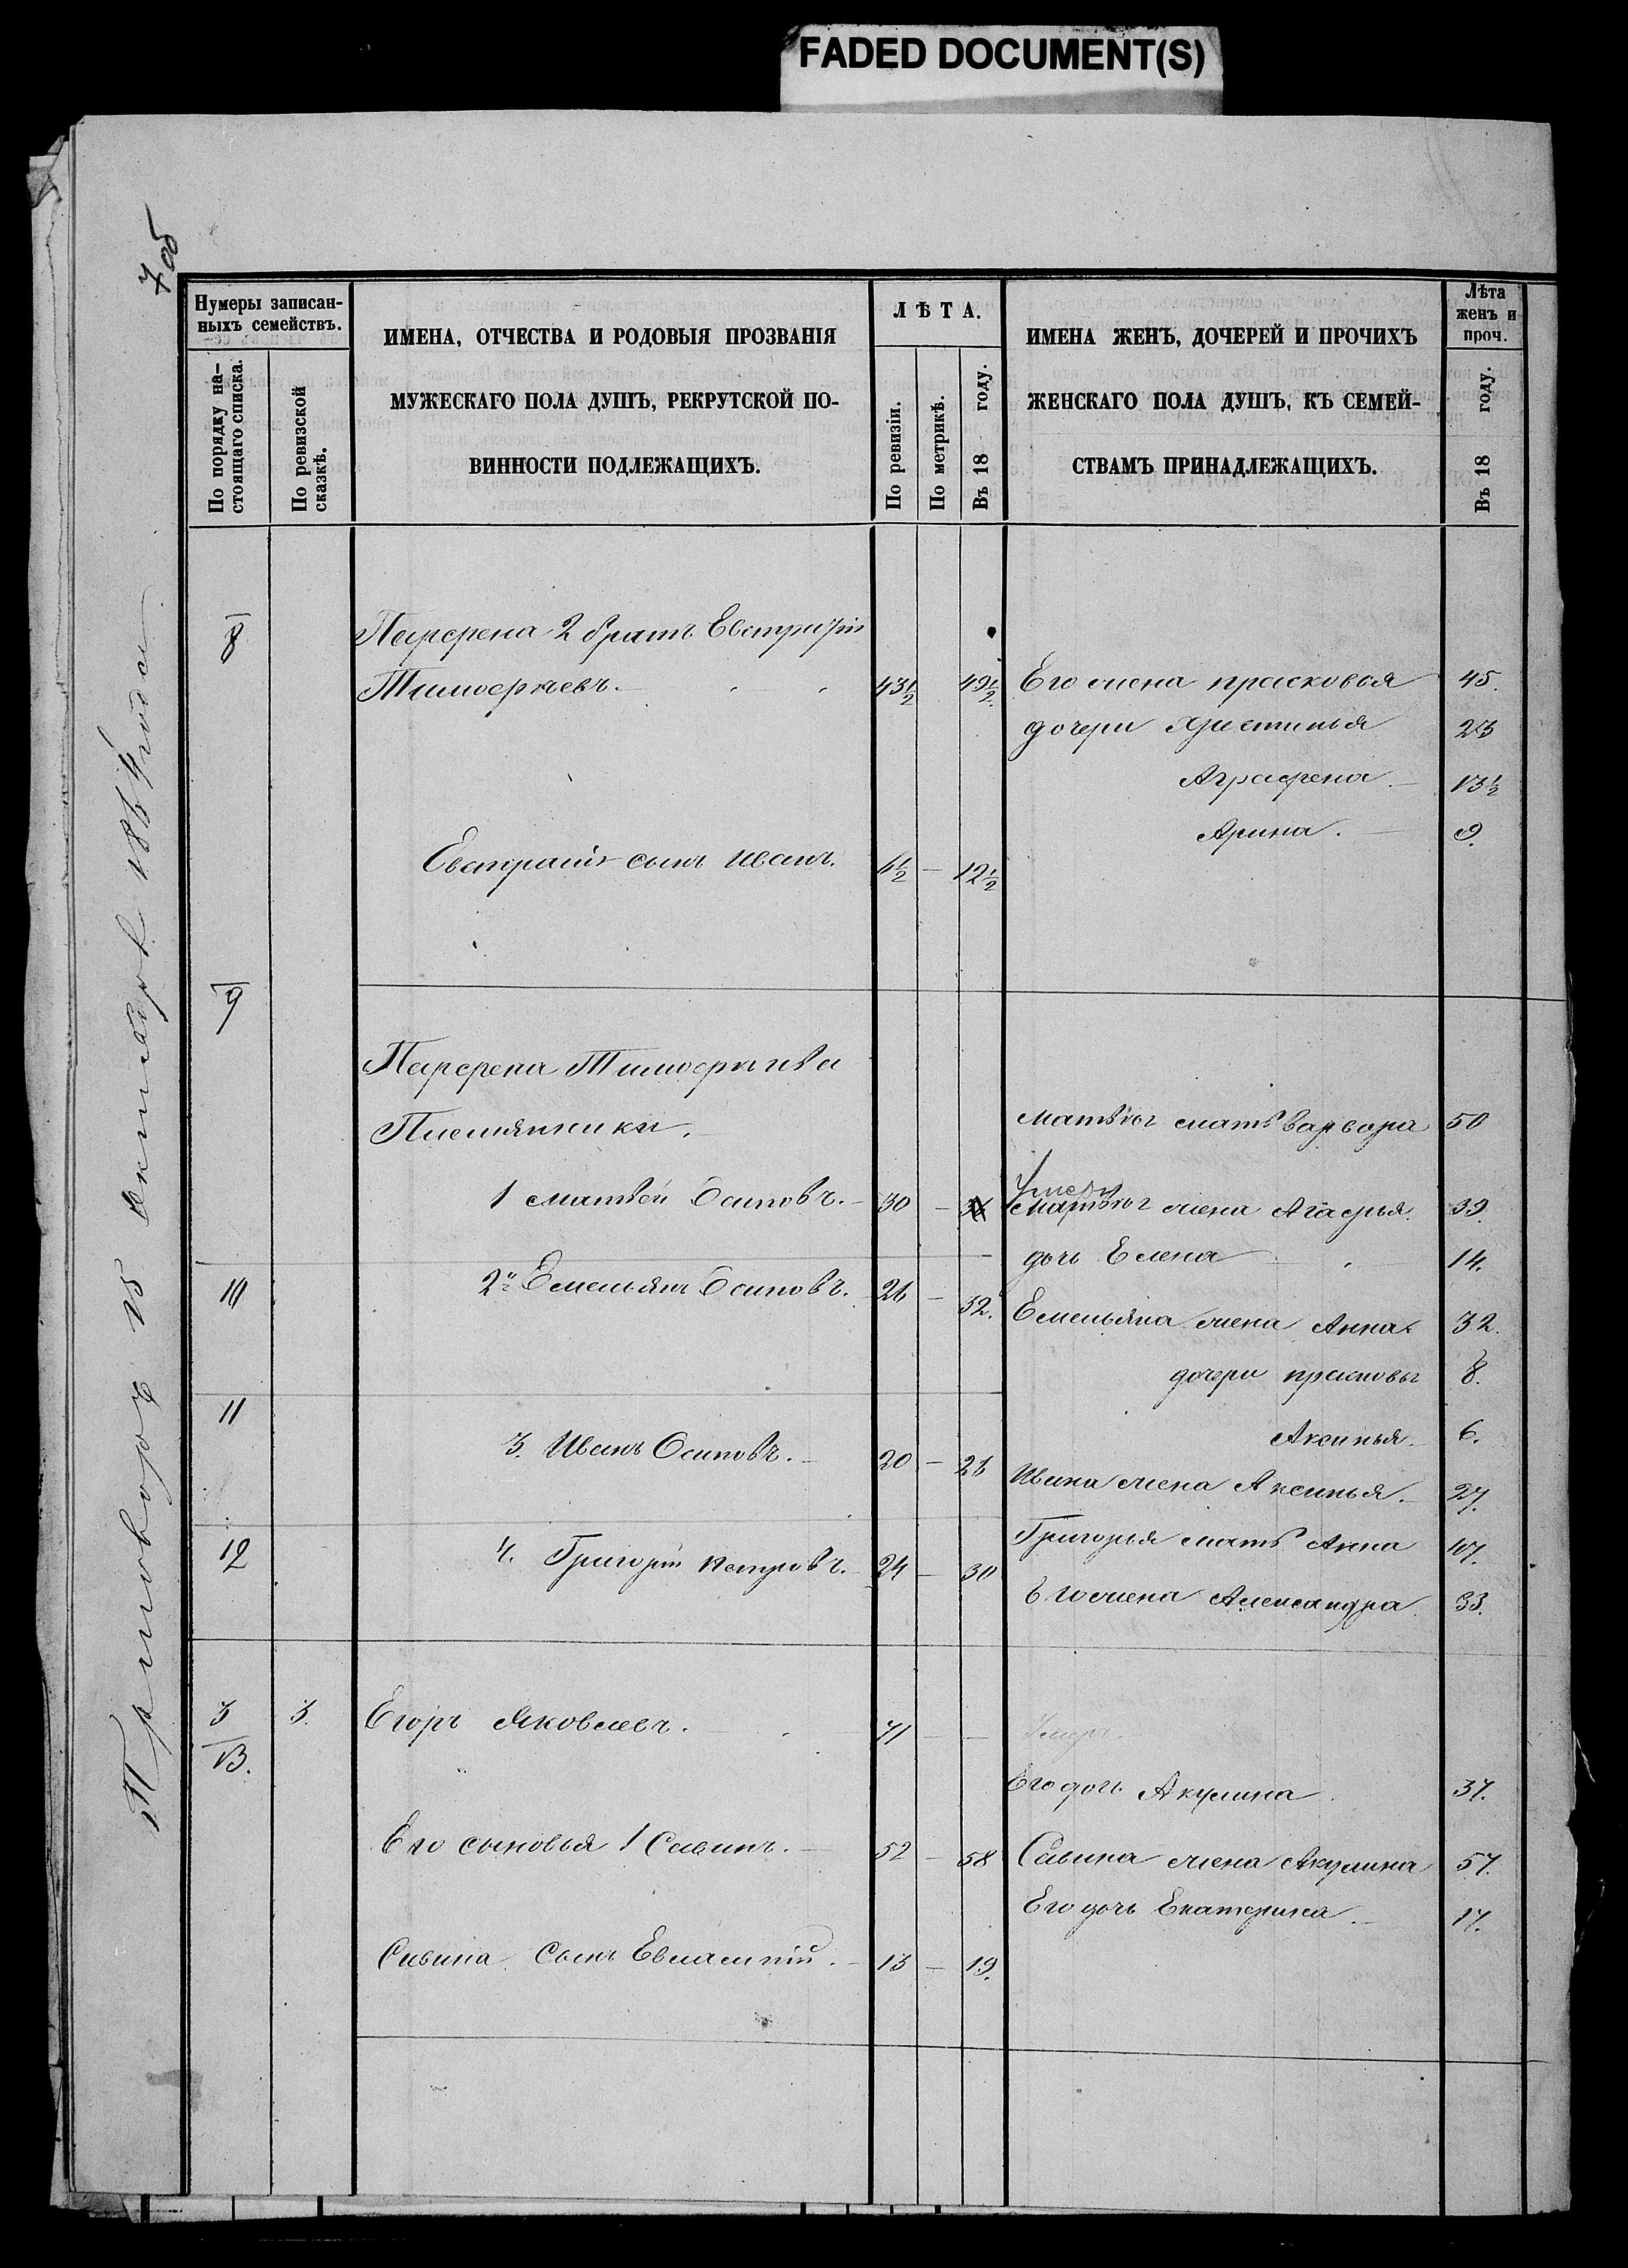 FADED DOCUMENT(S)
7 об
Нумеры записан-
ныхъ семействъ.
По порядку на-
стоящаго списка.
По ревизской
сказкѣ.
ИМЕНА, ОТЧЕСТВА И РОДОВЫЯ ПРОЗВАНІЯ
МУЖЕСКАГО ПОЛА ДУШЪ, РЕКРУТСКОЙ ПО-
ВИННОСТИ ПОДЛЕЖАЩИХЪ.
ЛѢТА.
По ревизіи.
По метрикѣ.
Въ 18 году.
ИМЕНА ЖЕНЪ, ДОЧЕРЕЙ И ПРОЧИХЪ
ЖЕНСКАГО ПОЛА ДУШЪ, КЪ СЕМЕЙ-
СТВАМЪ ПРИНАДЛЕЖАЩИХЪ.
Лѣта
женъ и
проч.
Въ 18 году.
8 Парфена 2 братъ Евстратій
Тимофеевъ. 43½ 49½ Его жена прасковья 45.
дочери Христинья 23
Аграфена. 13½
Арина. 9.
Евстратія сынъ Иванъ. 6½ — 12½
9
Парфена Тимофеева
Племянники. Матвѣя мать Варвара 50
Умерла
1 Матвей Осиповъ. 30 — 36 Матвѣя жена Агафья. 39.
дочь Елена 14.
10 2й Емельянъ Осиповъ. 26 — 32. Емельяна жена Анна 32.
дочери прасковья 8.
11 Аксинья. 6.
3. Иванъ Осиповъ. 20 — 26 Ивана жена Аксинья. 27.
12 4. Григорій Петровъ. 24 — 30 Григорья мать Анна 47.
Его жена Александра 33.
3 3. Егоръ Яковлевъ. 71 — — Умеръ.
13. Его дочь Акулина. 37.
Его сыновья 1 Савинъ. 52 — 58 Савина жена Акулина 57.
Его дочь Екатерина. 17.
Савина Сынъ Евлампій. 13 — 19.
15 Октября 1864 года